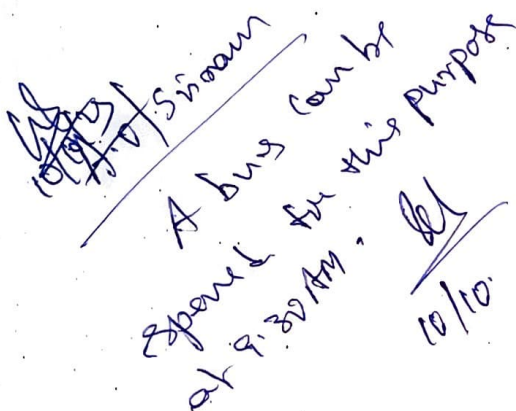 10/10/
A bus can be
spared for this purpose
at 9.30 AM.
10/10.